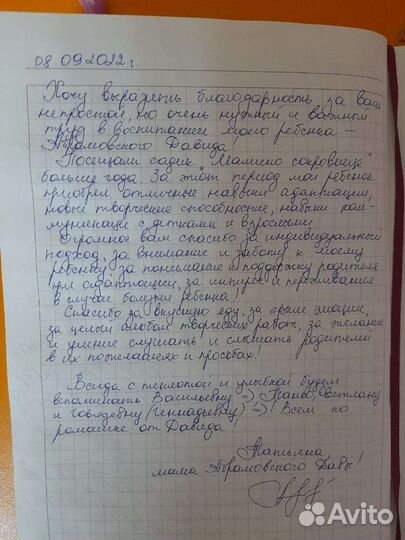 08.09.2022 г.
Хочу выразить благодарность за ваш
непростой, но очень нужный и важный
труд в воспитании моего ребенка –
Абрамовского Давида!
Посещали садик "Мамино сокровище"
больше года. За этот период мой ребенок
приобрел отличные навыки адаптации,
новые творческие способности, навыки ком-
муникации с детками и взрослыми.
Огромное вам спасибо за индивидуальный
подход, за внимание и заботу к моему
ребенку за понимание и поддержку родителя
при адаптации, за интерес и переживание
в случае болезни ребенка!
Спасибо за вкусную еду, за яркие эмоции,
за целый альбом творческих работ, за желание
и умение слушать и слышать родителей
в их пожеланиях и просьбах!
Всегда с теплотой и улыбкой будем
вспоминать Васильевну :) Светлану
и Говядевну (Геннадьевну) :) ! Всем по
ромашке от Давида
Татьяна
мама Абрамовского Давы!
Avito